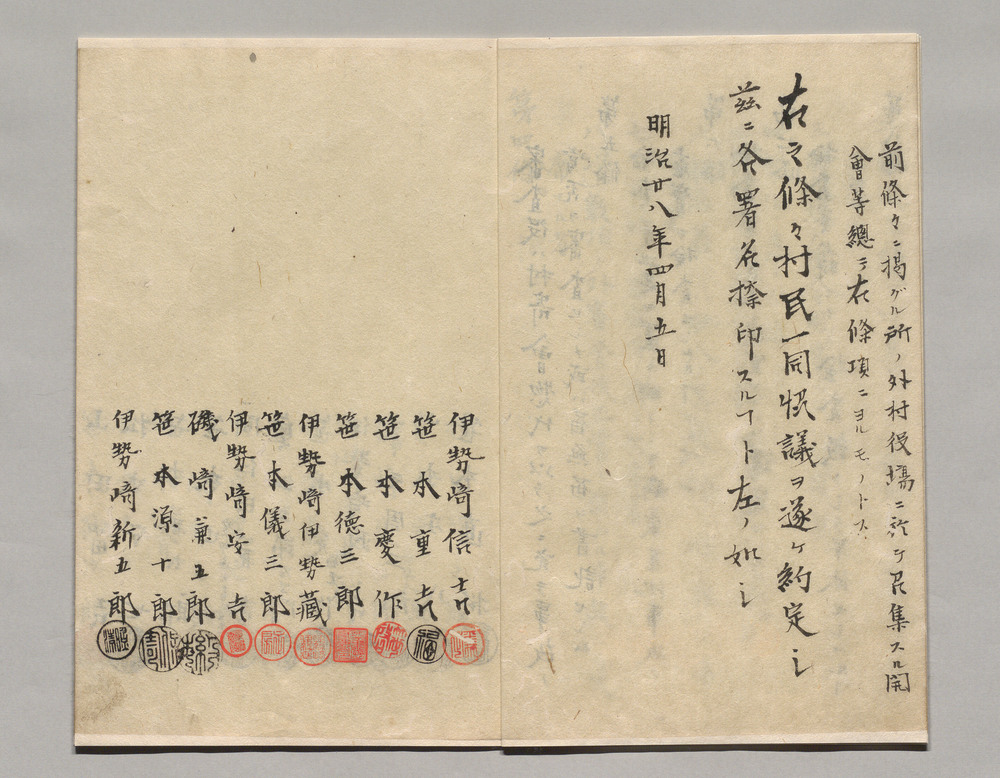 前條々ニ掲グル所ノ外村役場ニ於ケ召集スル開
會等總テ右條項ニヨルモノトス
右之條々村民一同協議ヲ遂ケ約定シ
茲ニ各署名捺印スルヿト左ノ如シ
明治廿八年四月五日
伊勢﨑信吉
笹本重吉
笹本慶作
笹本徳三郎
伊勢﨑伊勢藏
笹本儀三郎
伊勢﨑安吉
磯﨑兼五郎
笹本源十郎
伊勢﨑新五郎